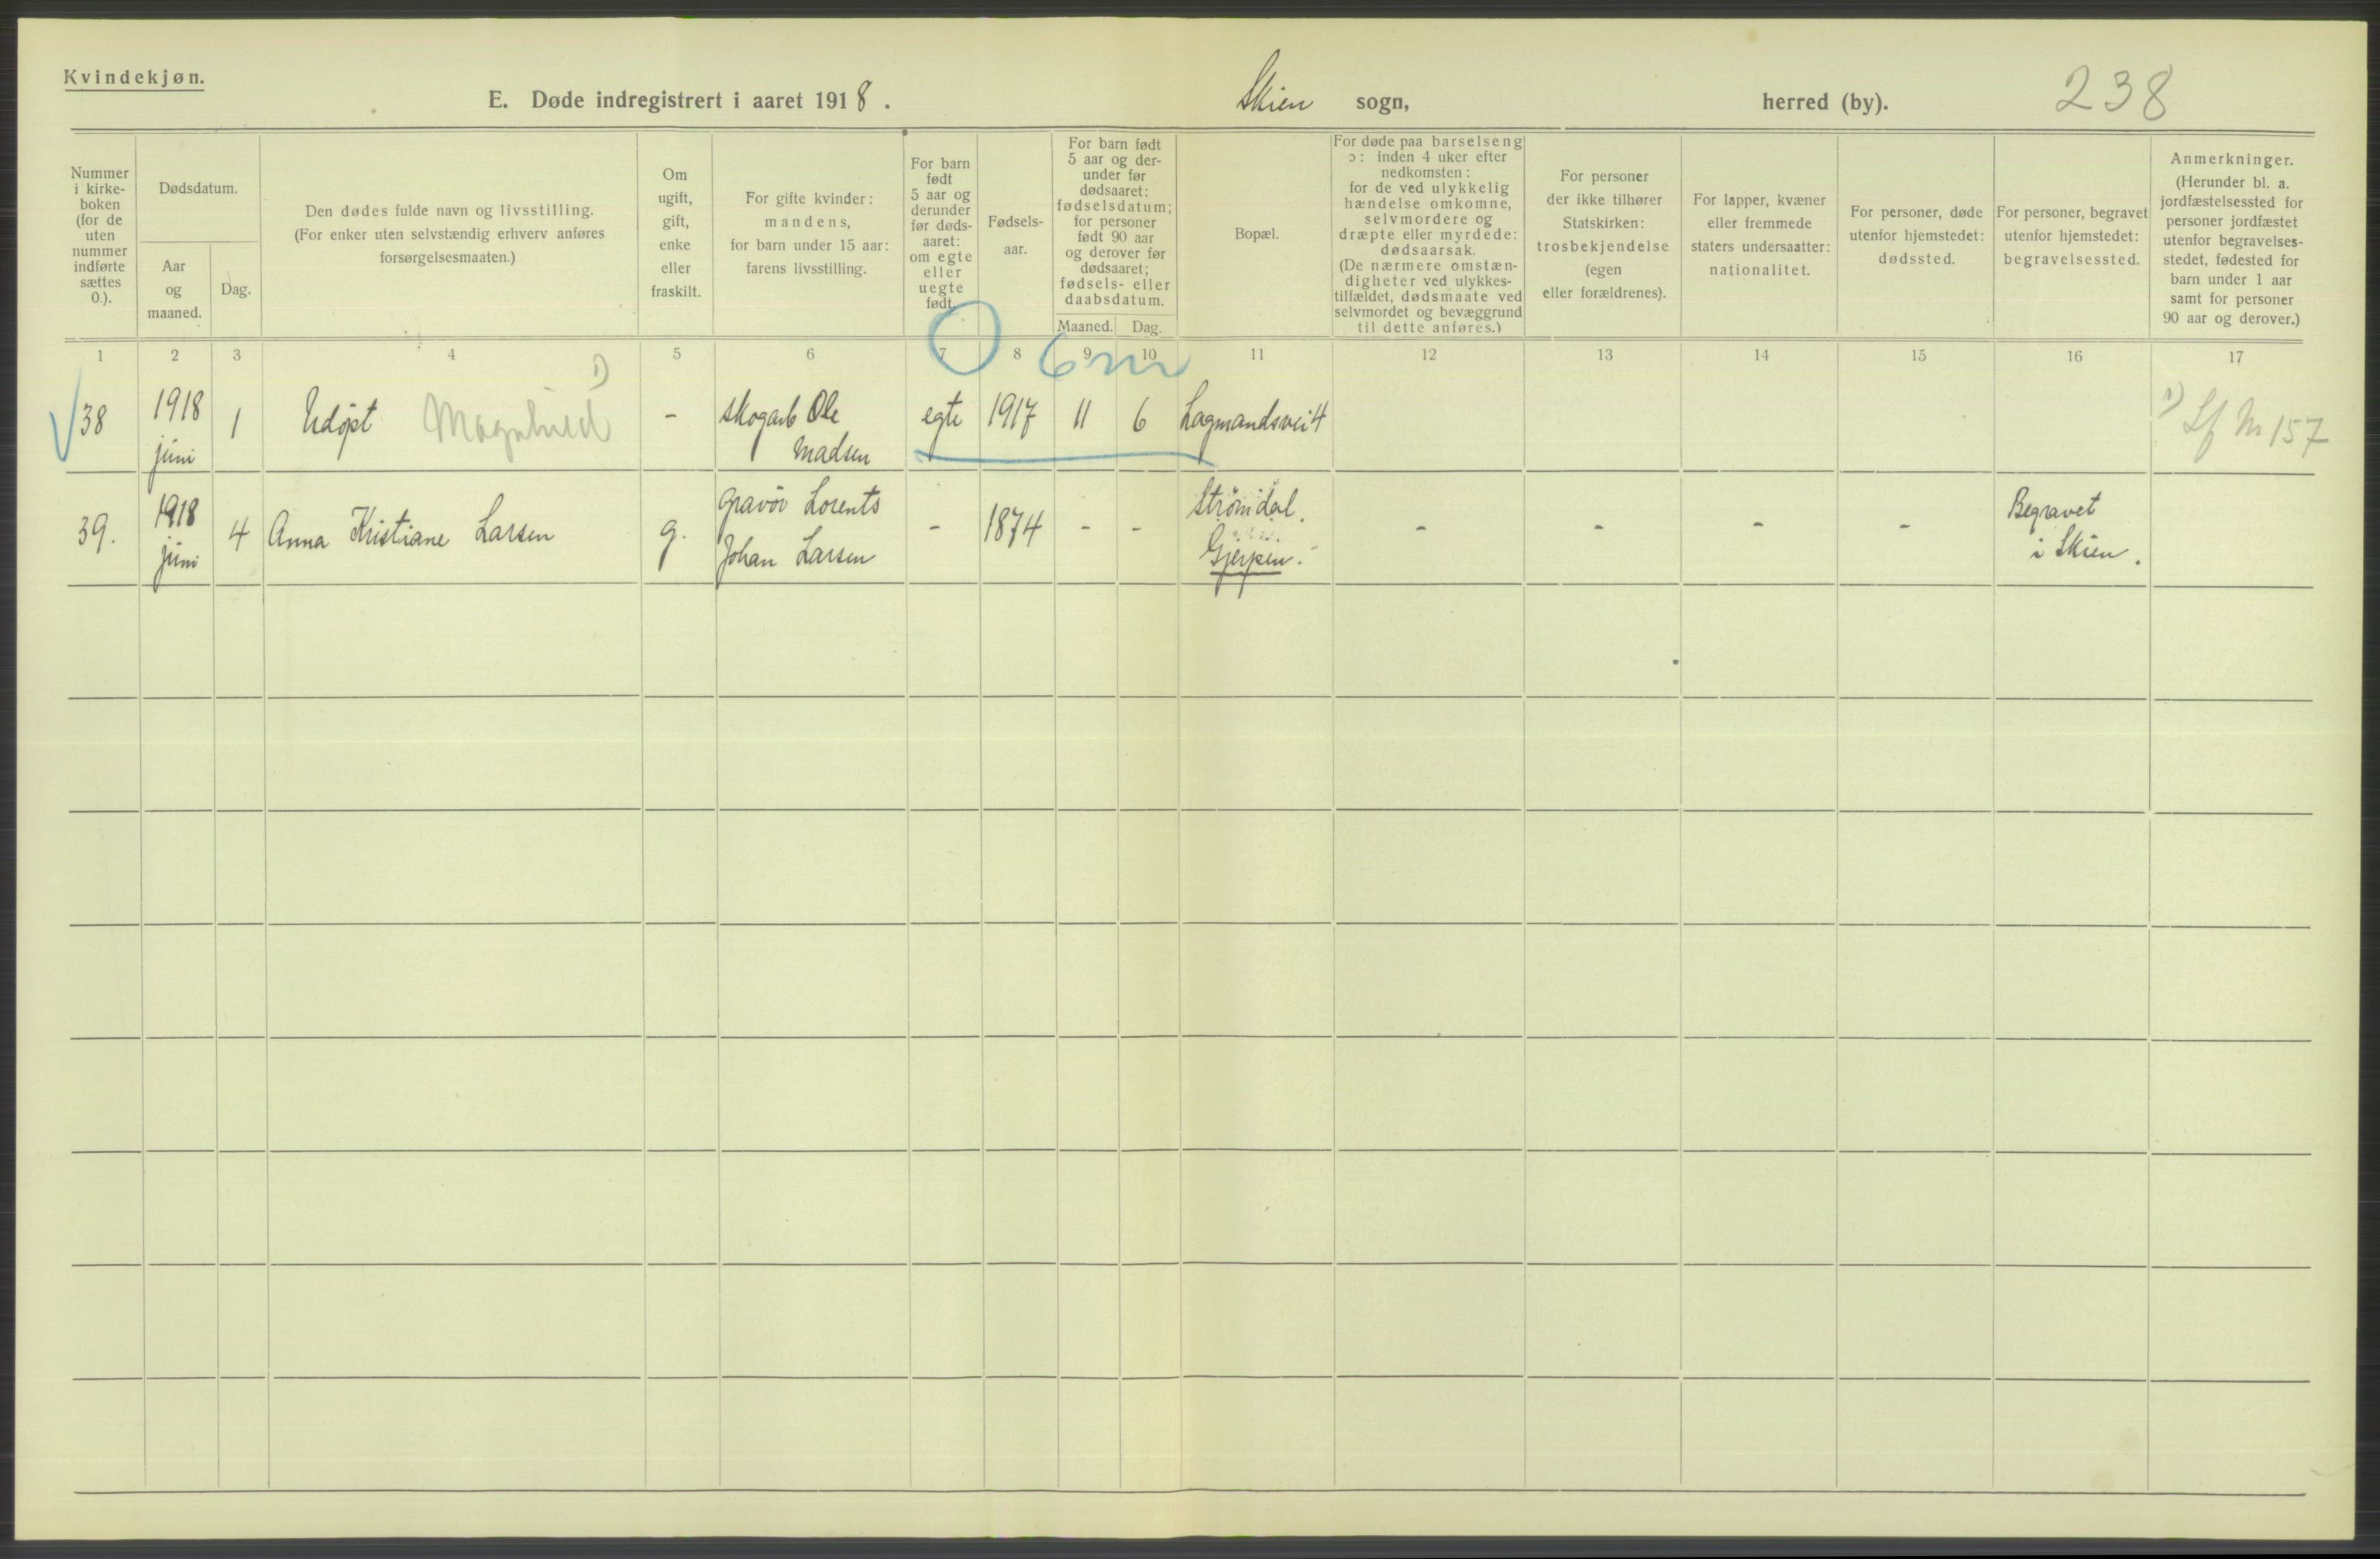 Kvindekjøn.
E. Døde indregistrert i aaret 1918.
Skien sogn,
herred (by).
238
Nummer
i kirke-
boken
(for de
uten
nummer
indførte
sættes
0.).
Dødsdatum.
Aar
og
maaned.
Dag.
Den dødes fulde navn og livsstilling.
(For enker uten selvstændig erhverv anføres
forsørgelsesmaaten.)
Om
ugift,
gift,
enke
eller
fraskilt.
For gifte kvinder:
mandens,
for barn under 15 aar:
farens livsstilling.
For barn
født
5 aar og
derunder
før døds-
aaret:
om egte
eller
uegte
født.
Fødsels-
aar.
For barn født
5 aar og der-
under før
dødsaaret:
fødselsdatum;
for personer
født 90 aar
og derover før
dødsaaret;
fødsels- eller
daabsdatum.
Maaned.
Dag.
Bopæl.
For døde paa barselseng
ɔ: inden 4 uker efter
nedkomsten:
for de ved ulykkelig
hændelse omkomne,
selvmordere og
dræpte eller myrdede:
dødsaarsak.
(De nærmere omstæn-
digheter ved ulykkes-
tilfældet, dødsmaate ved
selvmordet og bevæggrund
til dette anføres.)
For personer
der ikke tilhører
Statskirken:
trosbekjendelse
(egen
eller forældrenes).
For lapper, kvæner
eller fremmede
staters undersaatter:
nationalitet.
For personer, døde
utenfor hjemstedet:
dødssted.
For personer, begravet
utenfor hjemstedet:
begravelsessted.
Anmerkninger.
(Herunder bl. a.
jordfæstelsessted for
personer jordfæstet
utenfor begravelses-
stedet, fødested for
barn under 1 aar
samt for personer
90 aar og derover.)
1 2 3 4 5 6 7 8 9 10 11 12 13 14 15 16 17
0 6 m
38
1918
juni
1
Udøpt Magnhild 1)
-
skogarb Ole
Madsen
egte
1917
11
6
Lagmandsvei 4
1) Lf Nr 157
39.
1918
juni
4
Anna Kristiane Larsen
g.
gravör Lorents
Johan Larsen
-
1874
-
-
Strömdal.
Gjerpen.
-
-
-
-
Begravet
i Skien.